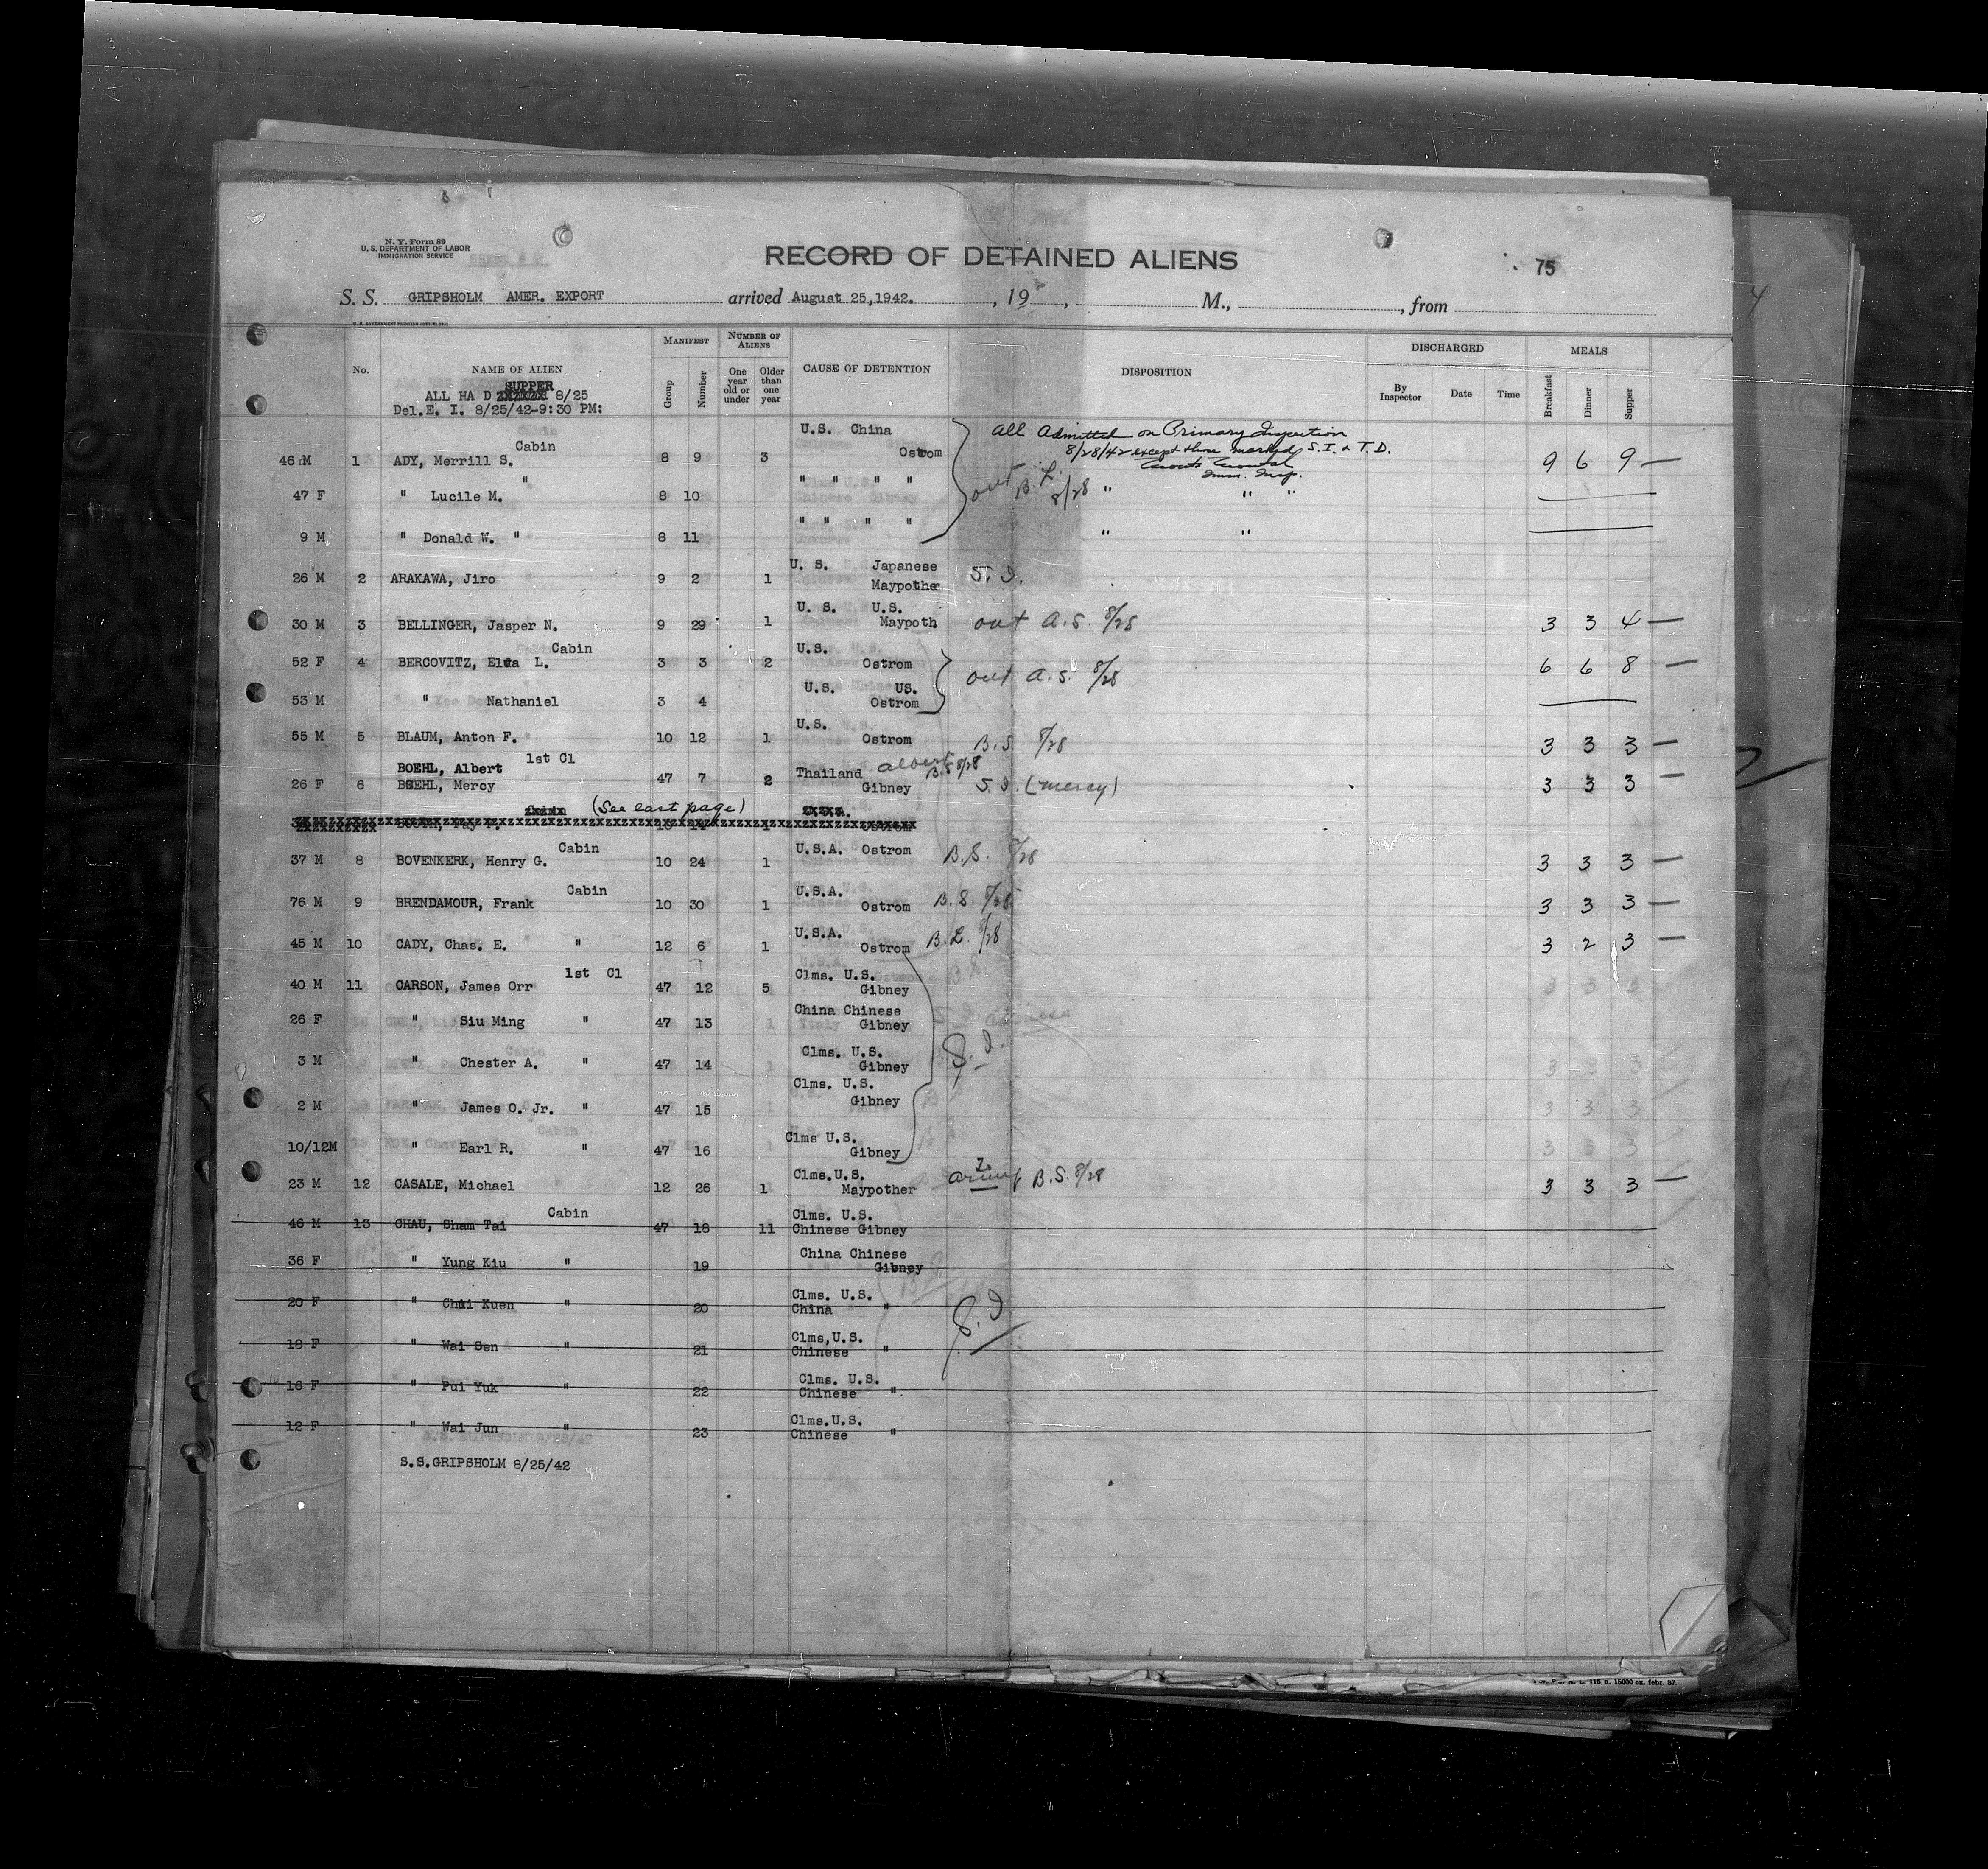 N. Y. Form 89
U. S. DEPARTMENT OF LABOR
IMMIGRATION SERVICE
RECORD OF DETAINED ALIENS
75
S. S. GRIPSHOLM AMER. EXPORT arrived August 25,1942. , 19 , M., , from
No. NAME OF ALIEN MANIFEST Group Number NUMBER OF ALIENS One year old or under Older than one year CAUSE OF DETENTION DISPOSITION DISCHARGED By Inspector Date Time MEALS Breakfast Dinner Supper
SUPPER
ALL HA D 8/25
Del.E. I. 8/25/42-9:30 PM:
U.S. China All Admitted on Primary Inspection
Cabin 8/28/42 except those marked S.I. & T.D.
46 M 1 ADY, Merrill S. 8 9 3 Ostrom 9 6 9 —
Imm. Insp.
47 F " Lucile M. " 8 10 " " " " out B.L. 8/28 " " "
9 M " Donald W. " 8 11 " " " " " "
26 M 2 ARAKAWA, Jiro 9 2 1 U. S. Japanese S.I.
Maypothe
30 M 3 BELLINGER, Jasper N. 9 29 1 U. S. U.S. out A.S. 8/28 3 3 4 —
Maypoth
Cabin
52 F 4 BERCOVITZ, Elva L. 3 3 2 U.S. Ostrom out A.S. 8/28 6 6 8 —
53 M " Nathaniel 3 4 U.S. US.
Ostrom
55 M 5 BLAUM, Anton F. 10 12 1 U.S. Ostrom B.S 8/28 3 3 3 —
BOEHL, Albert 1st Cl Albert B.S 8/28
26 F 6 BOEHL, Mercy 47 7 2 Thailand Gibney S.I. (Mercy) 3 3 3 —
(See last page)
37 M 8 BOVENKERK, Henry G. Cabin 10 24 1 U.S.A. Ostrom B.S. 8/28 3 3 3 —
76 M 9 BRENDAMOUR, Frank Cabin 10 30 1 U.S.A. Ostrom B.S 8/28 3 3 3 —
45 M 10 CADY, Chas. E. " 12 6 1 U.S.A. Ostrom B.L. 8/28 3 2 3 —
40 M 11 CARSON, James Orr 1st Cl 47 12 5 Clms. U.S. Gibney
26 F " Siu Ming " 47 13 China Chinese Gibney
3 M " Chester A. " 47 14 Clms. U.S. Gibney S.I.
2 M " James O. Jr. " 47 15 Clms. U.S. Gibney
10/12M " Earl R. " 47 16 Clms U.S. Gibney
23 M 12 CASALE, Michael 12 26 1 Clms.U.S. Maypother Army B.S. 8/28 3 3 3 —
46 M 13 CHAU, Sham Tai Cabin 47 18 11 Clms. U.S. Chinese Gibney
36 F " Yung Kiu " 19 China Chinese Gibney
20 F " Chui Kuen " 20 Clms. U.S. China " S.I
18 F " Wai Sen " 21 Clms,U.S. Chinese "
16 F " Pui Yuk " 22 Clms. U.S. Chinese "
12 F " Wai Jun " 23 Clms.U.S. Chinese "
S.S.GRIPSHOLM 8/25/42